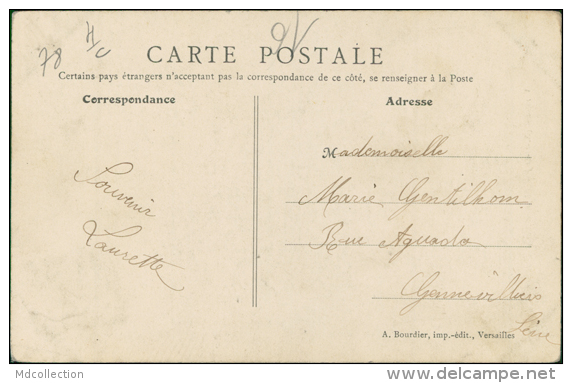 78
H/U
CARTE POSTALE
Certains pays étrangers n'acceptant pas la correspondance de ce côté, se renseigner à la Poste
Correspondance
Adresse
Mademoiselle
Marie Gentilhom
Rue Aguado
Gennevilliers
Seine
Souvenir
Laurette
A. Bourdier, imp.-édit., Versailles
Mdcollection
http://www.delcampe.net